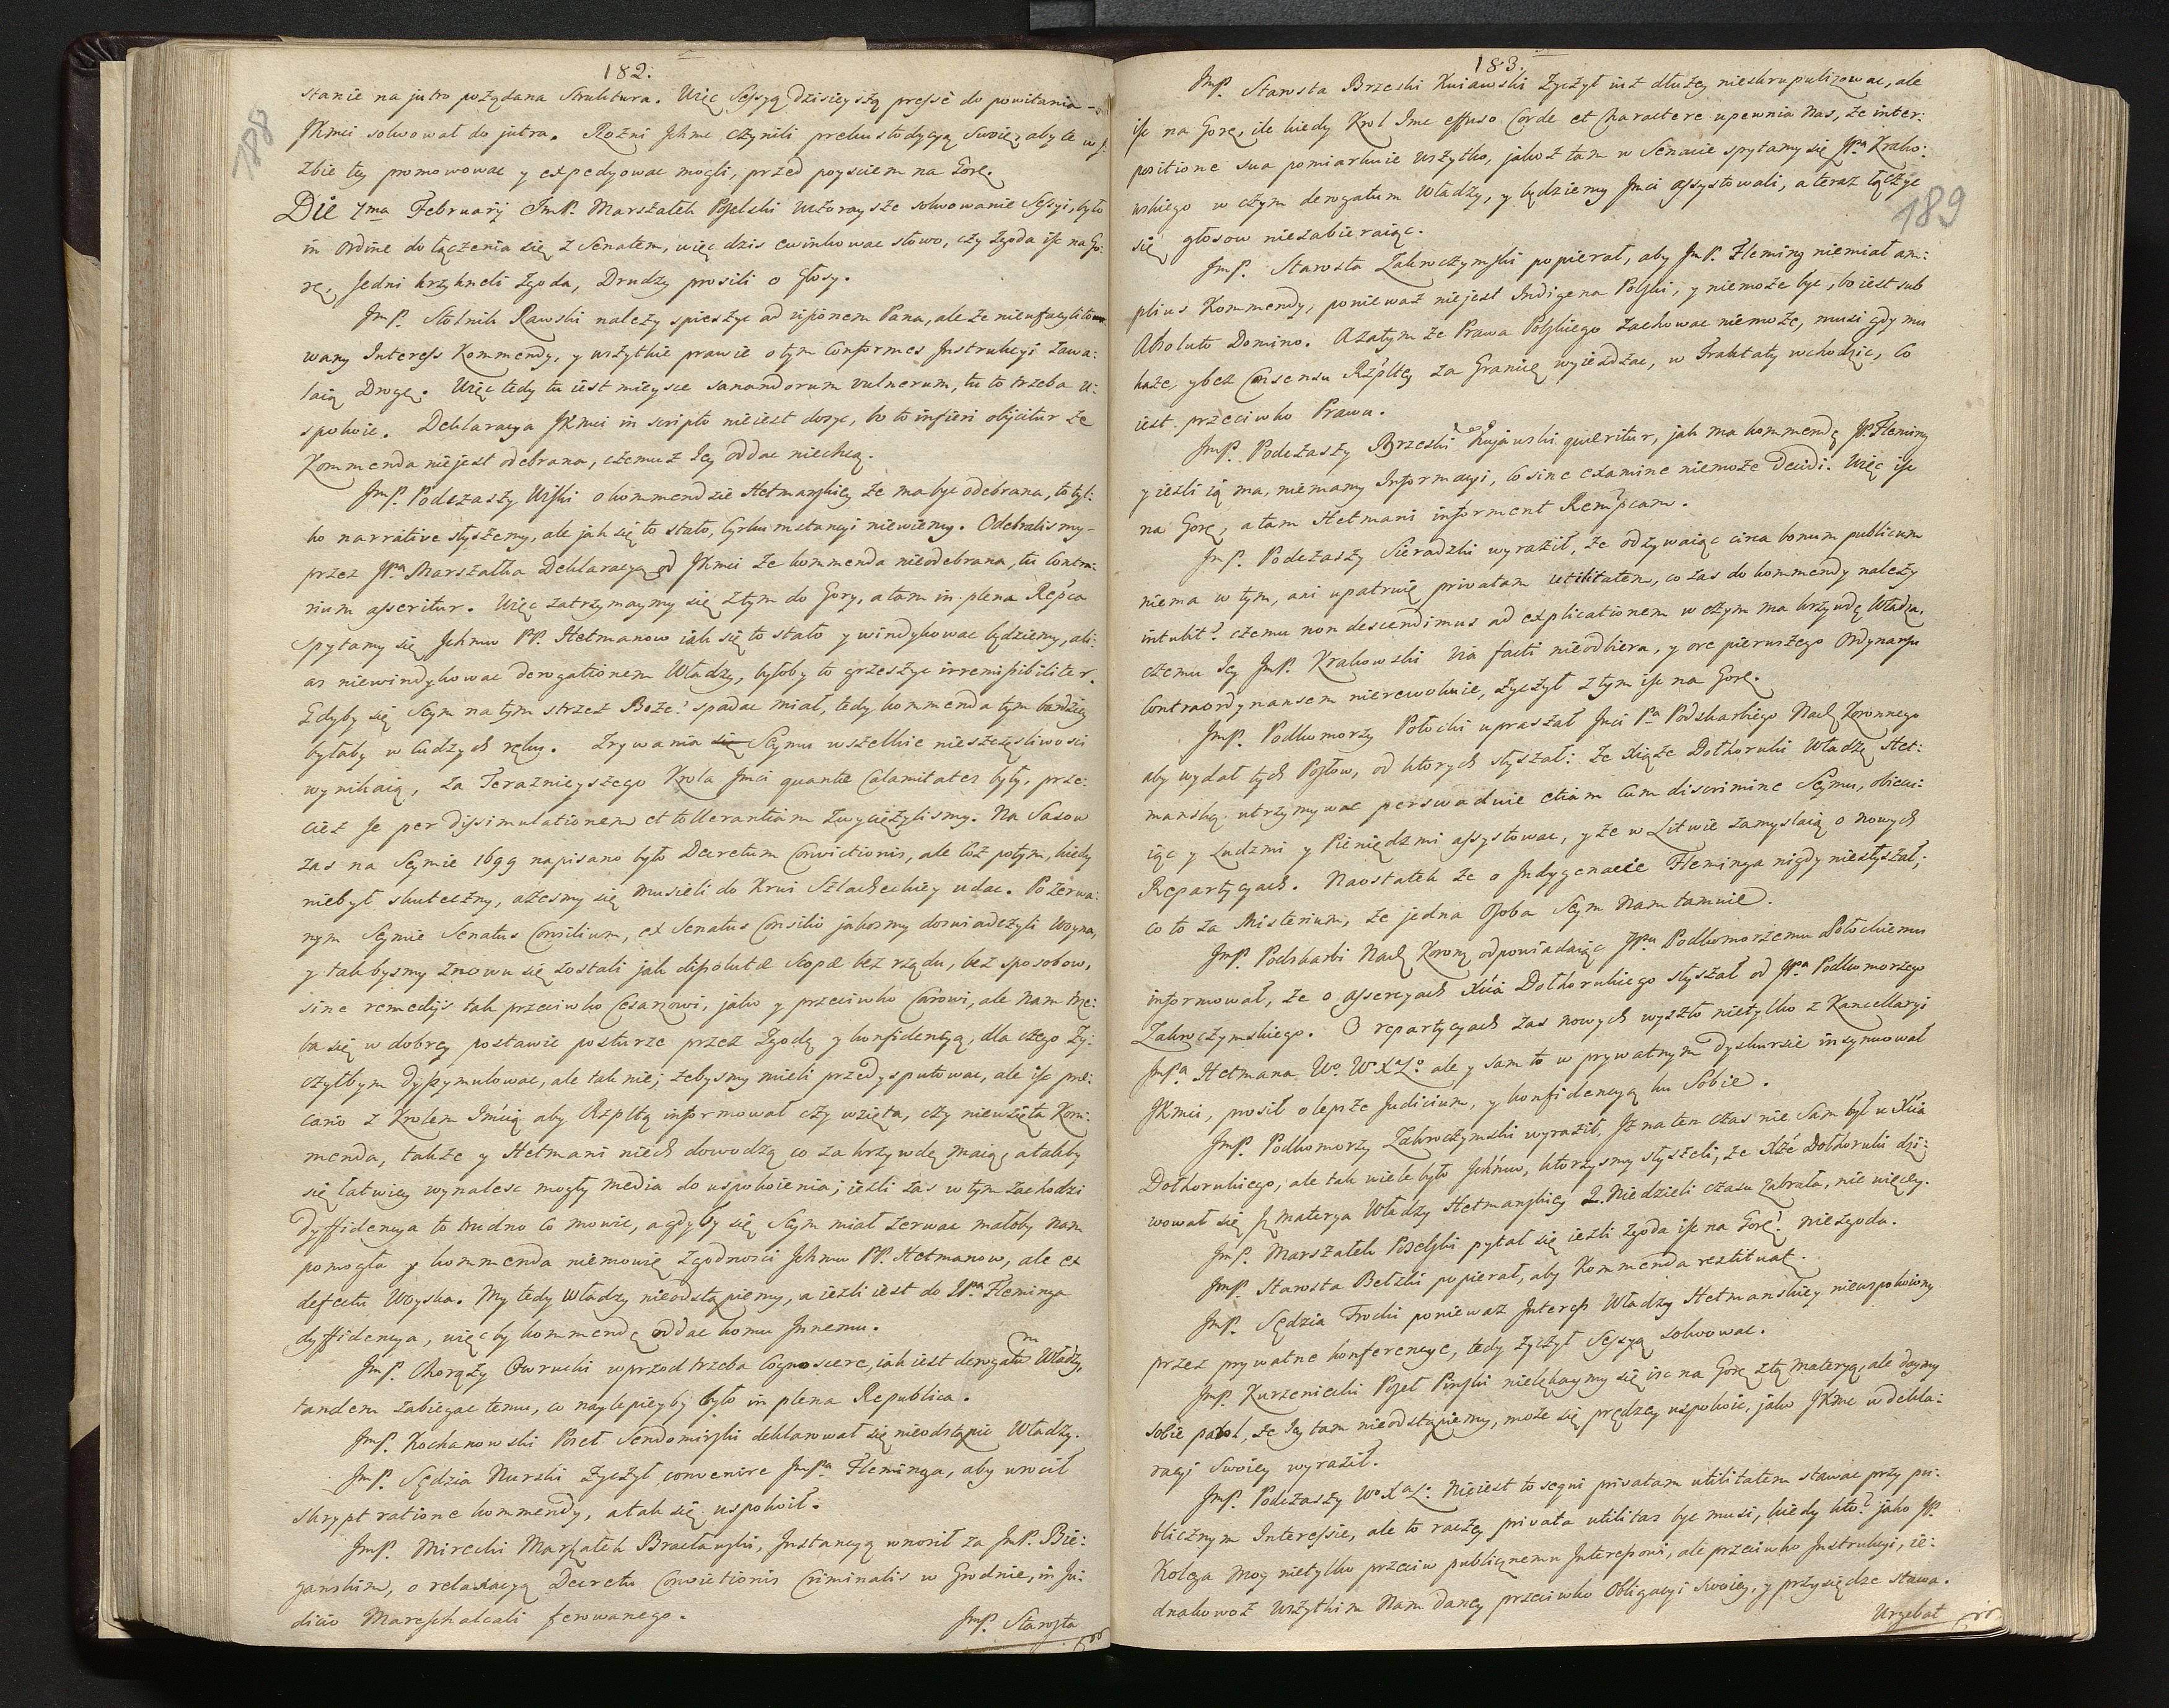 182.
188
stanie na jutro pożądana Struktura. Więc Sessyą dzisieyszą presse do powitania
JKmci solwował do jutra. Rożni Ichmc czynili prekustodycyą swoię, aby te w J-
zbie tey promowować y expedyować mogli, przed poysciem na Gorę.
Die 7ma February ImP. Marszałek Poselski wczoraysze solwowanie Sessyi, było
in ordine do łączenia się z Senatem, więc dzis ewinkować słowo, czy zgoda isc na Go:
rę, Jedni krzykneli zgoda, Drudzy prosili o głosy.
JmP. Stolnik Rawski należy spieszyc ad visionem Pana, ale że nieufacylito
wany Interess Kommendy, y wszytkie prawie o tym Conformes Instrukcyi zawa:
laią Drogę. Więc tedy tu iest mieysce sanandorum vulnerum, tu to trzeba u:
spokoic. Deklaracya JKmci in scripto nieiest dosyc, bo to inferri obijcitur że
Kommenda niejest odebrana, czemuż Jey oddac niechcą.
JmP. Podczaszy Wisski o kommendzie Hetmanskiey że ma byc odebrana, to tyl:
ko narrative słyszemy, ale jak się to stało, Cyrkumstancyi niewiemy. Odebralismy
przez JPa Marszałka Deklaracyą od JKmci że kommenda nieodebrana, tu Contra:
rium asseritur. Więc zatrzymaymy się z tym do Gory, a tam in plena Repca
spytamy się Ichmw PP. Hetmanow iak się to stało y windykowac będziemy, ali:
as niewindykowac derogationem Władzy, byłoby to grzeszyc irremissibiliter.
Gdyby się Seym na tym strzeż Boże! spadac miał, tedy kommenda tym bardziey
byłaby w Cudzych ręku. Zrywania się Seymu wszelkie nieszczęsliwosci
wynikaią, za Teraznieyszego Krola Jmci quantæ Calamitates były, prze:
cież Je per dissimulationem et tollerantiam zwyciężylismy. Na Sasow
zas na Seymie 1699 napisano było Decretum Convictionis, ale coż potym, kiedy
niebył skuteczny, ażesmy się musieli do Krwi Szlacheckiey udac. Po zerwa:
nym Seymie Senatus Consilium, ex Senatus Consilio jakosmy doswiadczyli Woyna,
y takbysmy znowu się zostali jak dissolutæ scopæ bez rządu, bez sposobow,
sine remedijs tak przeciwko Cesarzowi, jako y przeciwko Carowi, ale nam trze:
ba się w dobrey postawie posturze przez zgodę y konfidencyą, dla czego zy:
czyłbym dyssymulowac, ale tak nie, zebysmy mieli przedysputowac, ale isc pre:
cario z Krolem Imcią aby Rzpltą informował czy wzięta, czy niewzięta Kom:
menda, także y Hetmani niech dowodzą co za krzywdę maią, a takby
się łatwiey wynalesc mogły media do uspokoienia; iezli zas w tym zachodzi
dyffidencya to trudno co mowic, a gdyby się Seym miał zerwac małoby nam
pomogła y kommenda niemowię zgodności Ichmw PP. Hetmanow, ale ex
defectu Woyska. My tedy władzy nieodstąpiemy, a iezli iest do JPa Fleminga
dyffidencya, więc by kommendę oddac komu Jnnemu.
JmP. Chorąży Owrucki wprzod trzeba Cognoscere, iak iest derogatum Władzy,
tandem zabiegac temu, co naylepieyby było in plena Republica.
JmP. Kochanowski Poseł Sendomirski deklarował się nieodstąpic Władzy.
JmP. Sędzia Nurski życzył, convenire JmPa Fleminga, aby wrocił
skrypt ratione kommendy, a tak się uspokoił.
JmP. Mirecki Marszałek Bracławski, Jnstancyą wnosił za JmP. Bie:
ganskim, o relaxacyą Decretu Convictionis Criminalis w Grodnie, in Ju:
dicio Mareschalcali ferowanego.
JmP. Starosta
183.
189
JmP. Starosta Brzeski Kuiawski życzył iuż dłużey nieskrupulizowac, ale
isc na Gorę, ile kiedy Krol Jmc effuso Corde et Charactere upewnia Nas, że inter:
positione sua pomiarkuie wszytko, jakoż tam w Senacie spytamy się JPa Krako:
wskiego w czym derogatum Władzy, y będziemy Jmci assystowali, a teraz łączyc
się głosow niezabieraiąc.
JmP. Starosta Zakroczymski popierał, aby JmP. Fleming niemiał am:
plius Kommendy, ponieważ niejest Indigena Polski, y niemoże byc, bo iest sub
Absoluto Domino. A zatym że Prawa Polskiego zachowac niemoże, musi gdy mu
każe, y bez Consensu Rzpltey za Granicę wyieżdżac, w Traktaty wchodzic, co
iest przeciwko Prawu.
JmP. Podczaszy Brzeski Kujawski quæritur, jak ma kommendę JP. Fleming
y iezli ią ma, niemamy Jnformacyi, co sine examine niemoże Decidi. Więc isc
na Gorę, a tam Hetmani informent Rempcam.
JmP. Podczaszy Sieradzki wyraził, że odzywaiąc circa bonum publicum
niema w tym, ani upatruię privatam utilitatem, co zas do kommendy należy
intulit? czemu non descendimus ad explicationem w czym ma krzywdę Władza,
czemu Jey JmP. Krakowski via facti nieodbiera, y ore pierwszego Ordynansu
Contraordynansem nierewokuie, życzył z tym isc na Gorę.
JmP. Podkomorzy Połocki upraszał Jmci Pa Podskarbiego Nad. Koronnego
aby wydał tych Posłow, od ktorych słyszał: że Xiąże Dołhoruki Władzę Het:
manską utrzymywac perswaduie etiam cum discrimine Seymu, obiecu:
iąc y Ludzmi y Pieniędzmi assystowac, y że w Litwie zamyslaią o nowych
Repartycyach. Naostatek że o Jndygenacie Fleminga nigdy niesłyszał;
co to za Misterium, że jedna Osoba Seym Nam tamuie.
JmP. Podskarbi Nad. Koron. odpowiadaiąc JPu Podkomorzemu Połockiemu
informował, że o assercyach Xcia Dołhorukiego słyszał od JPa Podkomorzego
Zakroczymskiego. O repartycyach zas nowych wyszło nietylko z Kancellaryi
JmPa Hetmana Wo. WXaLo. ale y sam to w prywatnym dyskursie insynuował
JKmci, prosił o lepsze Judicium, y konfidencyą ku Sobie.
JmP. Podkomorzy Zakroczymski wyraził, Jż na ten czas nie sam był u Xcia
Dołhorukiego, ale tak wiele było Jchmw, ktorzysmy słyszeli, że Xże Dołhoruki dzi:
wował się Jż materya Władzy Hetmanskiey 2. Niedzieli czasu zabrała, nie więcey.
JmP. Marszałek Poselski pytał się iezli zgoda isc na Gorę? niezgoda.
JmP. Starosta Bełzki popierał, aby Kommenda restituat.
JmP. Sędzia Trocki ponieważ Jnteress Władzy Hetmanskiey nieuspokoiony
przez prywatne konferencye, tedy życzył Sessyą solwowac.
JmP. Kurzeniecki Poseł Pinski nielękaymy się isc na Gorę z tą materyą, ale daymy
sobie parol, że Jey tam nieodstąpiemy, może się prędzey uspokoic, jako JKmc w dekla:
racyi swoiey wyraził.
JmP. Podczaszy WoXaLo. Nieiest to segui privatam utilitatem stawac przy pu:
blicznym Interessie, ale to raczey privata utilitas byc musi, kiedy kto? jako JP.
Kolega moy nietylko przeciw publicznemu Jnteressowi, ale przeciwko Jnstrukcyi, ie:
dnakowoż wszytkim Nam daney przeciwko Obligacyi swoiey, y przysiędze stawa.
Urgebat